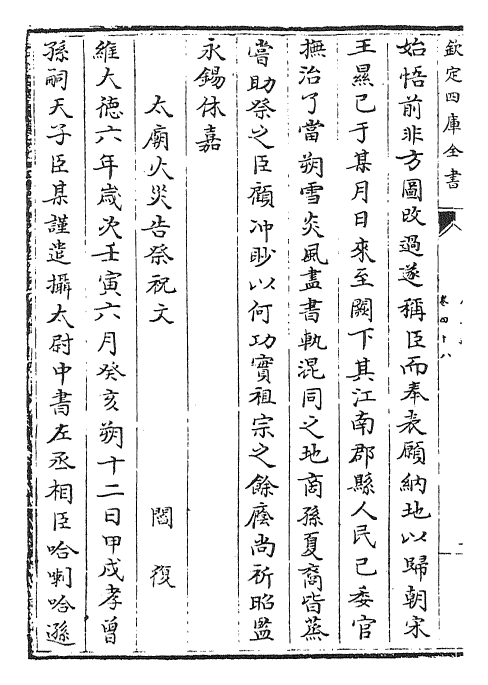 欽定四庫全書
卷四十八
始悟前非方圖改過遂稱臣而奉表願納地以歸朝宋
王㬎已于某月日來至闕下其江南郡縣人民已委官
撫治了當朔雪炎風盡書軌混同之地商孫夏裔皆蒸
嘗助祭之臣顧冲眇以何功實祖宗之餘廕尚祈昭鑒
永錫休嘉
太廟火災告祭祝文 閻復
維大徳六年歲次壬寅六月癸亥朔十二日甲戌孝曾
孫嗣天子臣某謹遣攝太尉中書左丞相臣哈喇哈遜